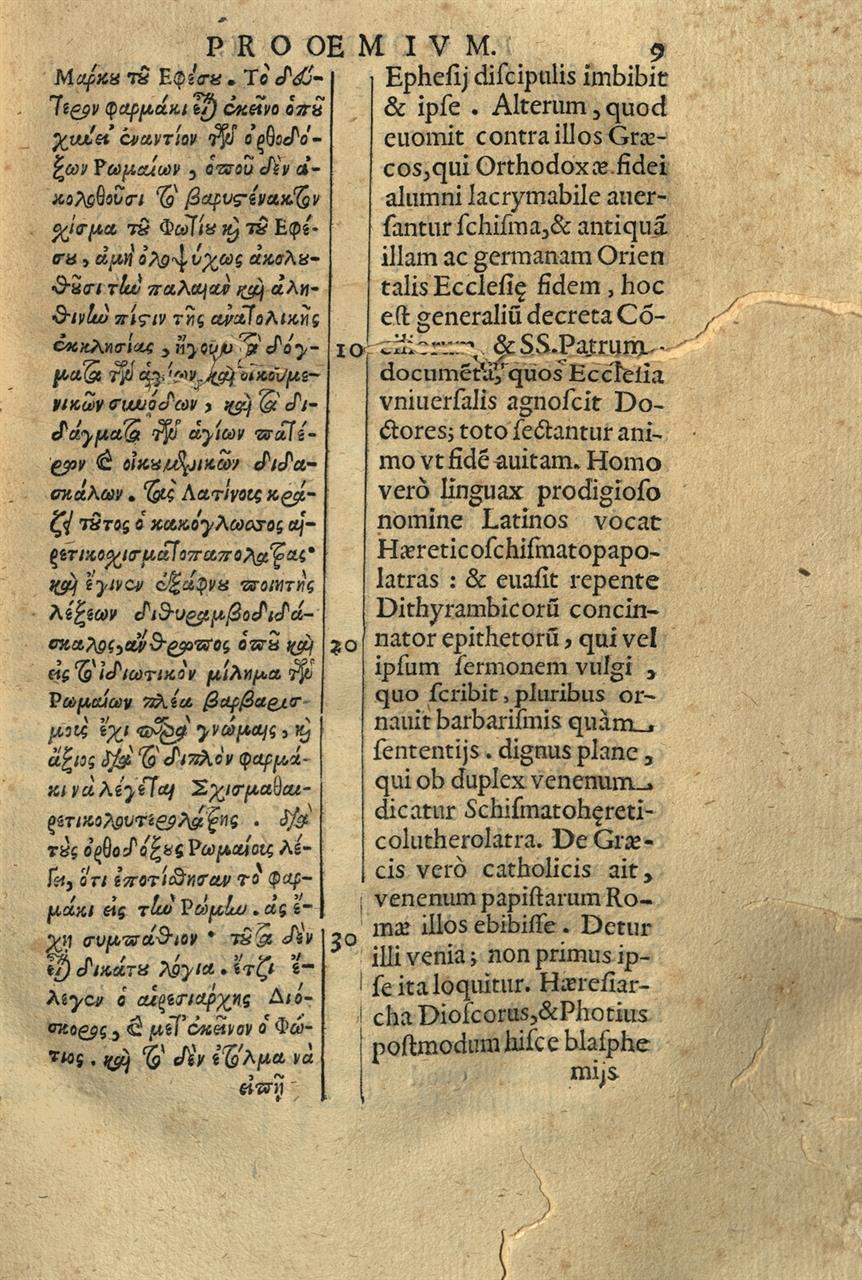 PROOEMIVM. 9
Μαρκου τοῦ Εφέσου. Τὸ δεύ-
τερον φαρμάκι εἶναι ἐκεῖνο ὁποῦ
χύνει ἐναντίον τῶν ὀρθοδό-
ξων Ρωμαίων, ὁποῦ δὲν ἀ-
κολουθοῦσι τὸ βαρυστένακτον
χίσμα τοῦ Φωτίου καὶ τοῦ Εφέ-
σου, ἀμὴ ὁλοψύχως ἀκολου-
θοῦσι τὴν παλαιὰν καὶ ἀλη-
θινὴν πίστιν τῆς ἀνατολικῆς
ἐκκλησίας, ἤγουν τὰ δόγ-
ματα τῶν ἁγίων καὶ οἰκουμε-
νικῶν συνόδων, καὶ τὰ δι-
δάγματα τῶν ἁγίων πατέ-
ρων καὶ οἰκουμενικῶν διδα-
σκάλων. τοὺς Λατίνοις κρά-
ζει τοῦτος ὁ κακόγλωσσος αἱ-
ρετικοχισματοπαπολάτρας·
καὶ ἔγινεν ἐξάφνου ποιητὴς
λέξεων διθυραμβοδιδά-
σκαλος, ἄνθρωπος ὁποῦ καὶ
εἰς τὸ ἰδιωτικὸν μίλημα τῶν
Ρωμαίων πλέα βαρβαρισ-
μοὺς ἔχι παρὰ γνώμαις, καὶ
ἄξιος διὰ τὸ διπλὸν φαρμά-
κι νὰ λέγεται Σχισμαθαι-
ρετικολουτερολάτρης. διὰ
τοὺς ὀρθοδόξους Ρωμαίοις λέ-
γει, ὅτι ἐποτίσθησαν τὸ φαρ-
μάκι εἰς τὴν Ρώμην. ἂς ἔ-
χῃ συμπάθιον· τοῦτα δὲν
εἶναι δικάτου λόγια. ἔτζι ἔ-
λεγεν ὁ αἱρεσιάρχης Διό-
σκορος, καὶ μετ' ἐκεῖνον ὁ Φώ-
τιος. καὶ τὸ δὲν ἐτόλμα νὰ
εἰπῇ
Ephesij discipulis imbibit
& ipse. Alterum, quod
euomit contra illos Græ-
cos, qui Orthodoxæ fidei
alumni lacrymabile auer-
santur schisma, & antiquã
illam ac germanam Orien
talis Ecclesię fidem, hoc
est generaliũ decreta Cõ-
10 ciliorum, & SS. Patrum
documẽta, quos Ecclesia
vniuersalis agnoscit Do-
ctores; toto sectantur ani-
mo vt fidẽ auitam. Homo
verò linguax prodigioso
nomine Latinos vocat
Hæreticoschismatopapo-
latras: & euasit repente
Dithyrambicorũ concin-
20 nator epithetorũ, qui vel
ipsum sermonem vulgi,
quo scribit, pluribus or-
nauit barbarismis quàm
sententijs. dignus plane,
qui ob duplex venenum
dicatur Schismatohęreti-
colutherolatra. De Græ-
cis verò catholicis ait,
venenum papistarum Ro-
mæ illos ebibisse. Detur
30 illi venia; non primus ip-
se ita loquitur. Hæresiar-
cha Dioscorus, & Photius
postmodum hisce blasphe
mijs